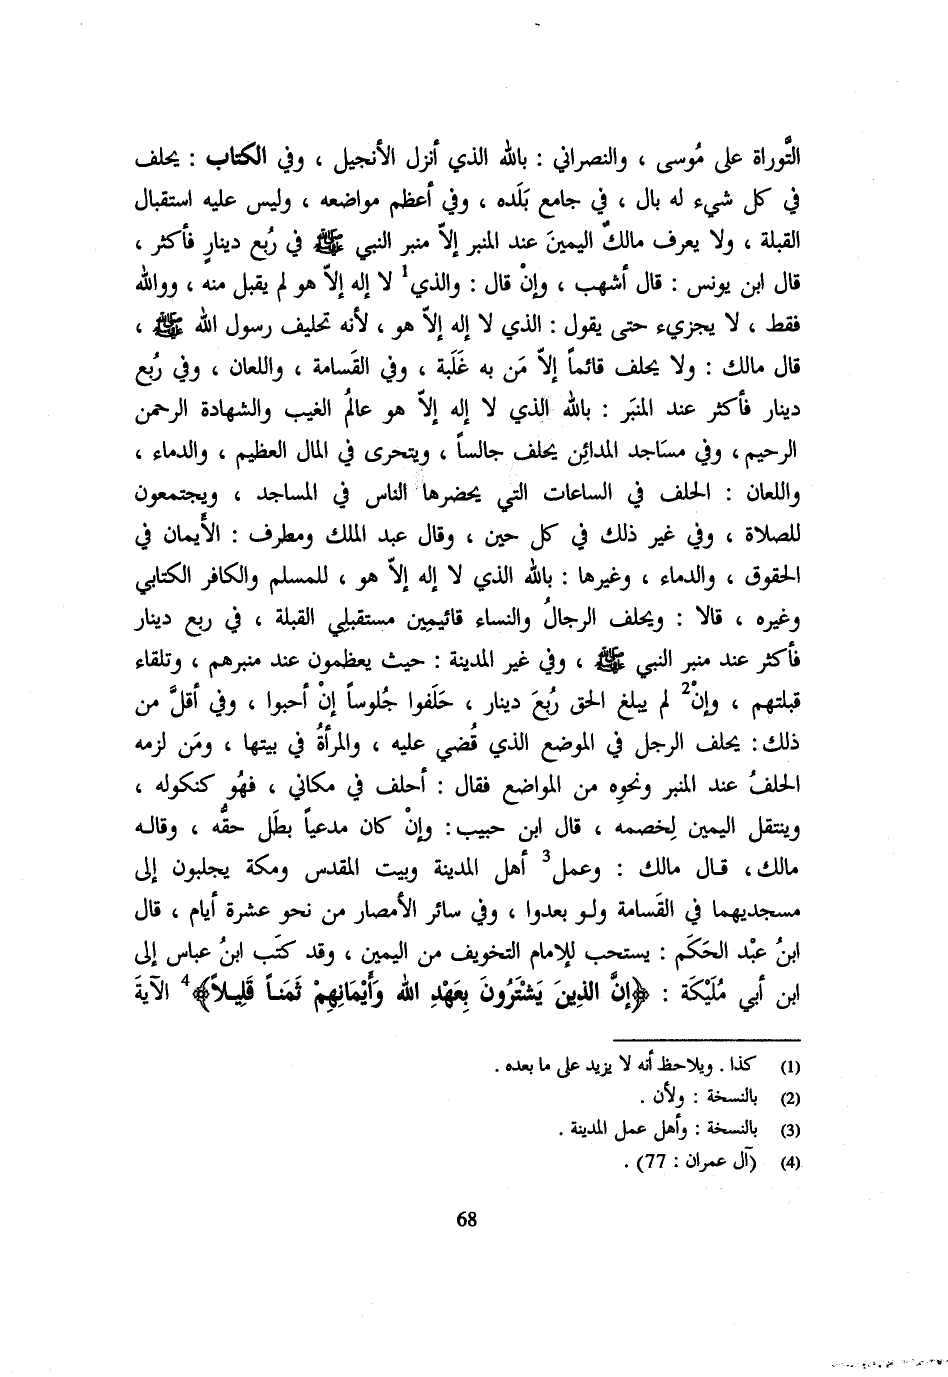 التَّوراة على مُوسى ، والنصراني : بالله الذي أنزل الأنجيل ، وفي الكتاب : يحلف
في كل شيء له بال ، في جامع بَلَده ، وفي أعظم مواضعه ، وليس عليه استقبال
القبلة ، ولا يعرف مالكٌ اليمينَ عند المنبر إلاّ منبر النبي ﷺ في رُبع دينارٍ فأكثر ،
قال ابن يونس : قال أشهب ، وإنْ قال : والذي1 لا إله إلاّ هو لم يقبل منه ، ووالله
فقط ، لا يجزيء حتى يقول : الذي لا إله إلاّ هو ، لأنه تحليف رسول الله ﷺ ،
قال مالك : ولا يحلف قائماً إلاّ مَن به غَلَبة ، وفي القَسامة ، واللعان ، وفي رُبع
دينار فأكثر عند المنبَر : بالله الذي لا إله إلاّ هو عالمُ الغيب والشهادة الرحمن
الرحيم ، وفي مسَاجد المدائِن يحلف جالساً ، ويتحرى في المال العظيم ، والدماء ،
واللعان : الحلف في الساعات التي يحضرها الناس في المساجد ، ويجتمعون
للصلاة ، وفي غير ذلك في كل حين ، وقال عبد الملك ومطرف : الأَيمان في
الحقوق ، والدماء ، وغيرها : بالله الذي لا إله إلاّ هو ، للمسلم والكافر الكتابي
وغيره ، قالا : ويحلف الرجالُ والنساء قائيمِين مستقبلِي القبلة ، في ربع دينار
فأكثر عند منبر النبي ﷺ ، وفي غير المدينة : حيث يعظمون عند منبرهم ، وتلقاء
قبلتهم ، وإنْ2 لم يبلغ الحق رُبعَ دينار ، حَلَفوا جُلوساً إنْ أحبوا ، وفي أقلَّ من
ذلك : يحلف الرجل في الموضع الذي قُضي عليه ، والمرأةُ في بيتها ، ومَن لزمه
الحلفُ عند المنبر ونحوِه من المواضع فقال : أحلف في مكاني ، فهُو كنكوله ،
وينتقل اليمين لِخصمه ، قال ابن حبيب : وإنْ كان مدعياً بطَل حقُّه ، وقاله
مالك ، قال مالك : وعمل3 أهل المدينة وبيت المقدس ومكة يجلبون إلى
مسجديهما في القَسامة ولو بعدوا ، وفي سائر الأمصار من نحو عشرة أيام ، قال
ابنُ عبْد الحَكَم : يستحب للإمام التخويف من اليمين ، وقد كتَب ابنُ عباس إلى
ابن أبي مُلَيْكَة : ﴿إنَّ الذِينَ يَشْتَرُونَ بِعَهْدِ الله وَأَيْمَانِهِمْ ثَمَناً قَلِيلاً﴾4 الآيةَ
(1) كذا . ويلاحظ أنه لا يزيد على ما بعده .
(2) بالنسخة : ولأن .
(3) بالنسخة : وأهل عمل المدينة .
(4) (آل عمران : 77) .
68